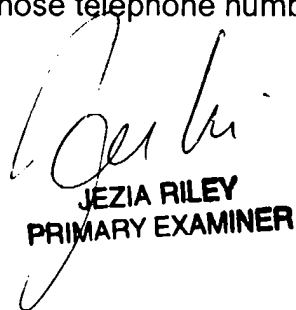 telephone numb
JEZIA RILEY
PRIMARY EXAMINER